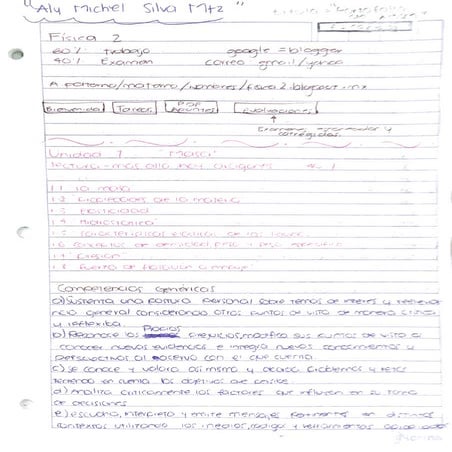 "Aly Michel Silva Mtz"
Física 2
60% trabajo google = blogger
40% Examen correo gmail /
A paterno/materno/nombres/fisica2.blogspot.mx
Bienvenida Tareas PDF Apuntes Evaluaciones
Examenes y
corregidos
Unidad 1 "
Lectura - mas alla hay
1.1 la masa
1.2 Propiedades de la materia
1.3 Elasticidad
1.4 Hidrostatica
1.5 Caracteristicas de los
1.6 Conceptos de densidad y peso especifico
1.7 Presion
1.8 Fuerza de
Competencias genéricas
a) Sustenta una postura personal sobre temas de interés y relevan
cia general considerando otros puntos de vista de manera critica
y reflexiva.
b) Reconoce los Propios prejuicios, modifica sus puntos de vista al
conocer nuevas evidencias e integra nuevos conocimientos y
perspectivas al acervo con el que cuenta.
c) se conoce y valora asi mismo y aborda problemas y retos
teniendo en cuenta los objetivos que persigue
d) Analiza criticamente los factores que influyen en su toma
de decisiones
e) escucha, interpreta y emite mensajes pertinentes en distintos
contextos utilizando los medios, codigos y herramientas
Norma